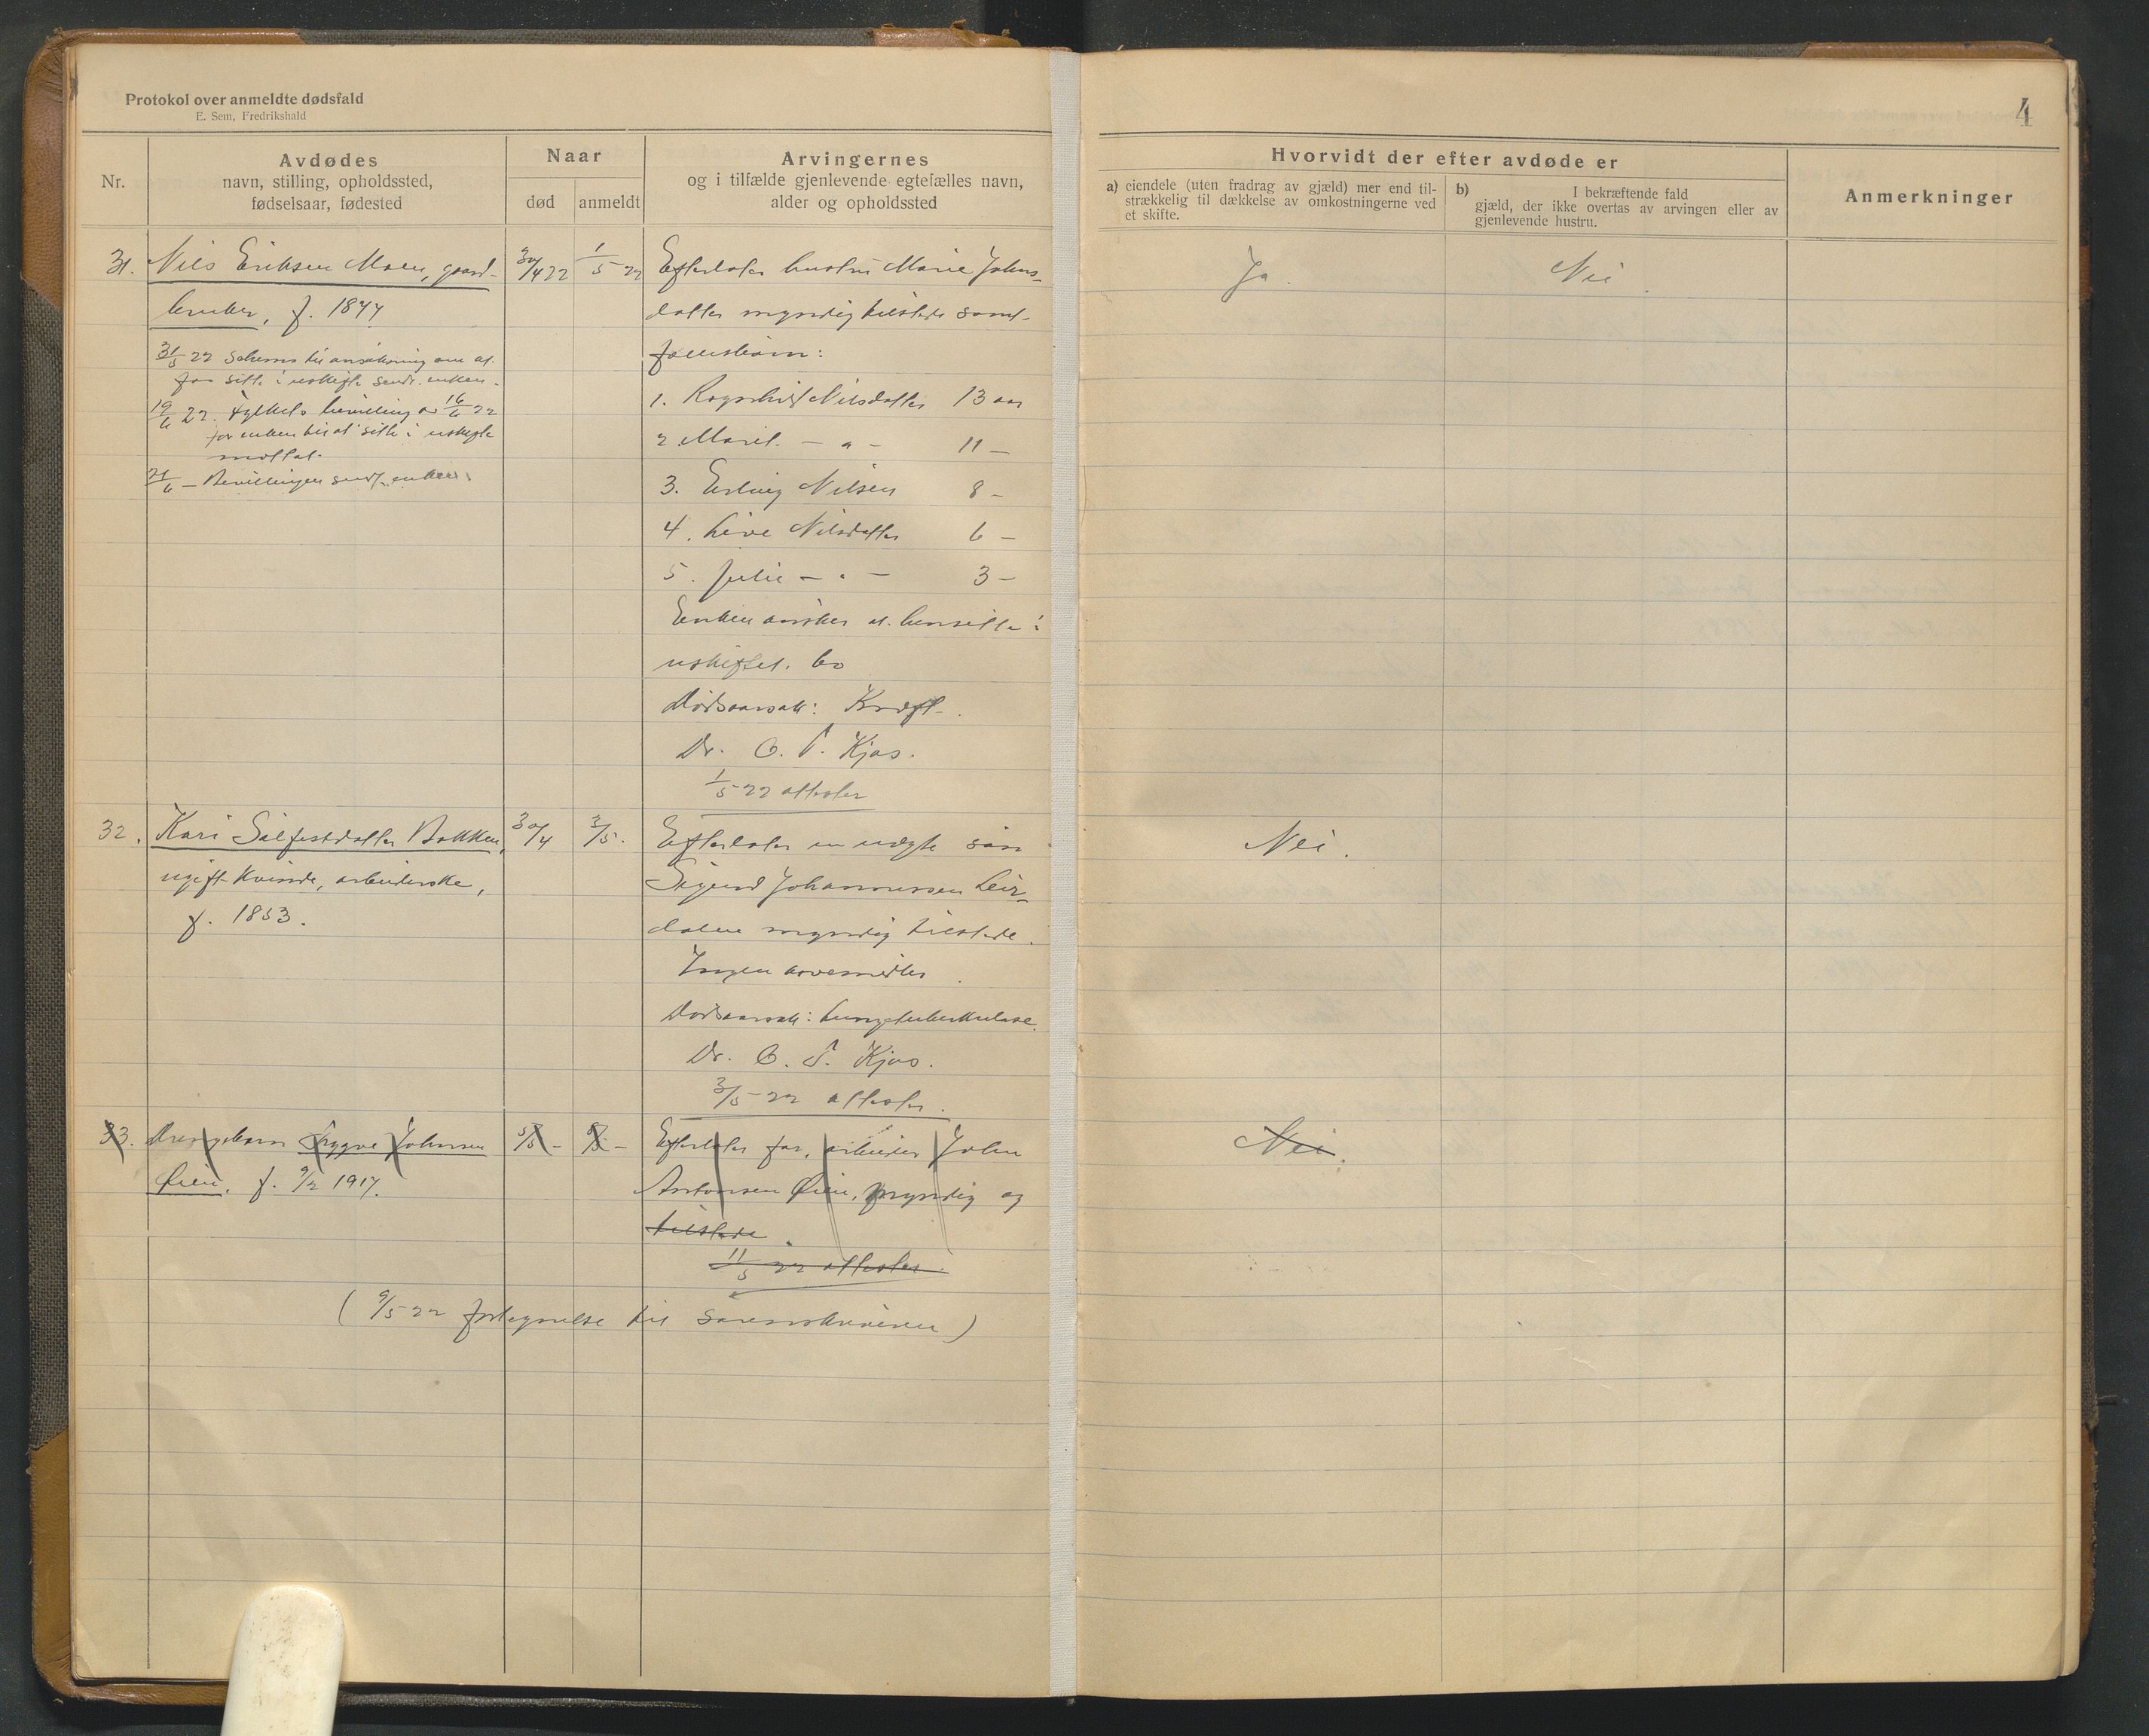 Protokol over anmeldte dødsfald
E. Sem, Fredrikshald
4
Nr.
Avdødes
navn, stilling, opholdssted,
fødselsaar, fødested
Naar
død
anmeldt
Arvingernes
og i tilfælde gjenlevende egtefælles navn,
alder og opholdssted
Hvorvidt der efter avdøde er
a) eiendele (uten fradrag av gjæld) mer end til-
strækkelig til dækkelse av omkostningerne ved
et skifte.
b) I bekræftende fald
gjæld, der ikke overtas av arvingen eller av
gjenlevende hustru.
Anmerkninger
31. Nils Eriksen Moen, gaard-
bruker, f. 1877
30/4 22
1/5 22
31/5 22 Schema til ansökning om at
faa sitte i uskifte sendt enken.
19/6 22. Fylkets bevilling av 16/6 22
for enken til at sitte i uskifte
mottat.
21/6 — Bevillingen sendt enken.
Efterlater hustru Marie Johns-
datter myndig tilstede samt
fællesbarn:
1. Ragnhild Nilsdatter 13 aar
2 Marit — " — 11 —
3. Erling Nilsen 8 —
4. Live Nilsdatter 6 —
5. Julie — " — 3 —
Enken ønsker at hensitte i
uskiftet bo
Dødsaarsak: Kræft.
Dr. O. T. Kjøs.
1/5 22 attester
Ja.
Nei.
32. Kari Silfestdatter Bakken,
ugift kvinde, arbeiderske,
f. 1853.
30/4
3/5.
Efterlater en uegte søn
Sigurd Johannessen Leir-
dalen myndig tilstede.
Ingen arvemidler.
Dødsaarsak: Lungetuberkulose.
Dr. O. T. Kjøs.
3/5 22 attester.
Nei.
33. Drengebarn Trygve Johnsen
Øien, f. 9/2 1917.
5/5 —
8/5 —
Efterlater far, arbeider John
Antonsen Øien, myndig og
tilstede.
11/5 22 attester.
Nei.
(9/5 22 fortegnelse til sorenskriveren)